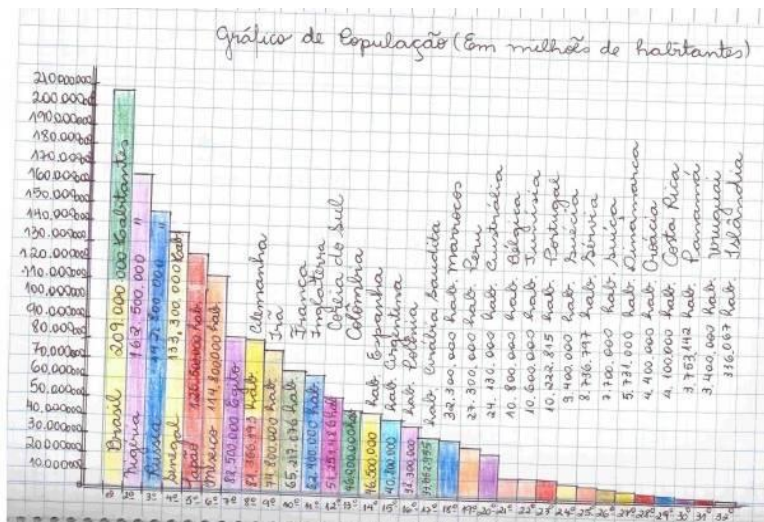 Gráfico de População (Em milhões de habitantes)
210.000.000
200.000.000
190.000.000
180.000.000
170.000.000
160.000.000
150.000.000
140.000.000
130.000.000
120.000.000
110.000.000
100.000.000
90.000.000
80.000.000
70.000.000
60.000.000
50.000.000
40.000.000
30.000.000
20.000.000
10.000.000
Brasil 209.000.000 habitantes
Nigéria 162.500.000 "
Rússia "
Senegal 133.300.000 hab.
Japão hab.
México 114.800.000 hab.
82.500.000 Egito
hab. Alemanha
74.800.000 hab. Irã
65.217.076 hab. França
62.400.000 hab. Inglaterra
hab. Coréia do Sul
hab. Colômbia
46.500.000 hab. Espanha
hab. Argentina
38.300.000 hab. Polônia
hab. Arábia Saudita
32.300.000 hab. Marrocos
27.300.000 hab. Peru
24.130.000 hab. Austrália
10.800.000 hab. Bélgica
10.600.000 hab. Tunísia
10.222.815 hab. Portugal
9.400.000 hab. Suécia
8.736.797 hab. Sérvia
7.700.000 hab. Suíça
5.731.000 hab. Dinamarca
4.400.000 hab. Croácia
4.100.000 hab. Costa Rica
3.753.142 hab. Panamá
3.400.000 hab. Uruguai
336.067 hab. Islândia
2º 3º 4º 5º 6º 7º 8º 9º 10º 11º 12º 13º 14º 15º 16º 17º 18º 19º 20º 21º 22º 23º 24º 25º 26º 27º 28º 29º 30º 31º 32º